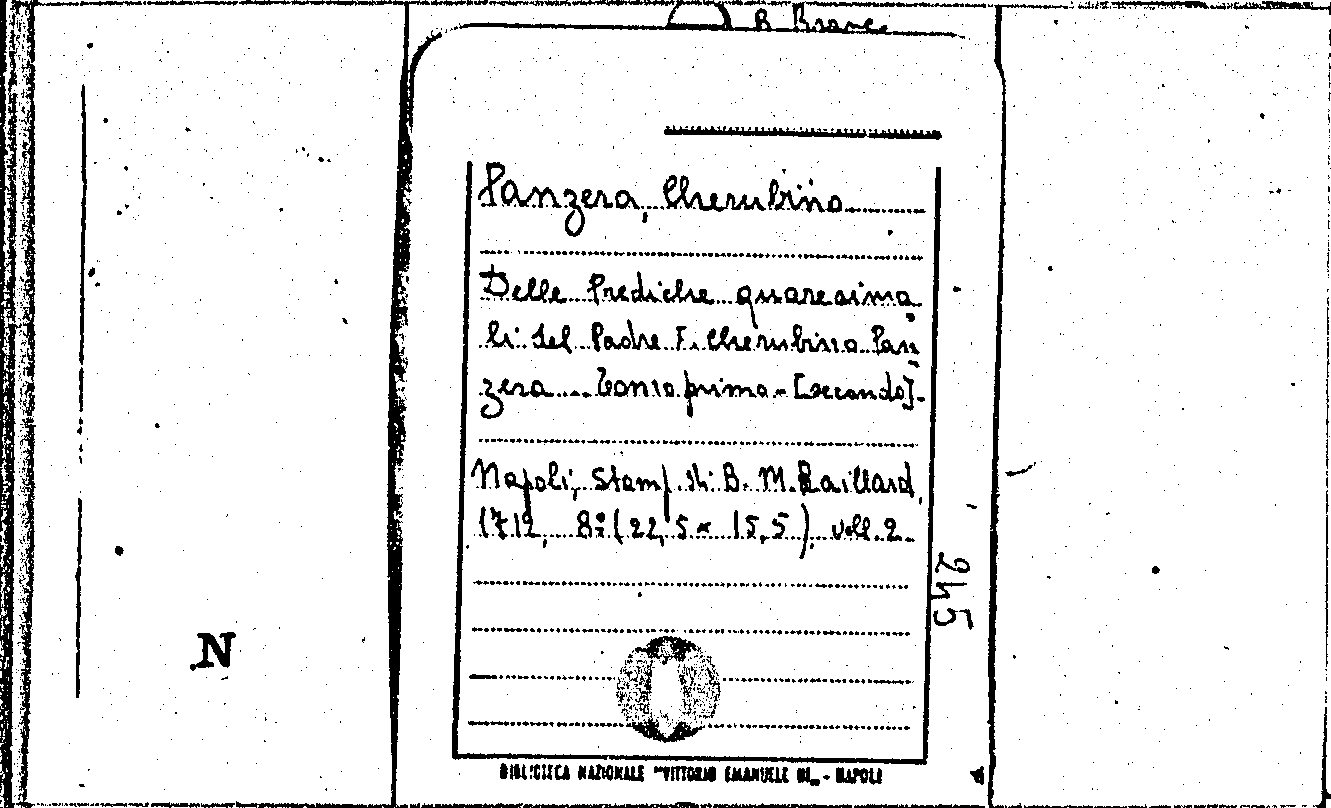 B. Branc.
Panzera, Cherubino
Delle Prediche quaresima
li del Padre F. Cherubino Pan
zera... Tomo primo-[secondo].
Napoli, Stamp. di B. M. Raillard,
1712, 8º (22,5 x 15,5), voll. 2.
245
N
BIBLIOTECA NAZIONALE "VITTORIO EMANUELE III„ - NAPOLI